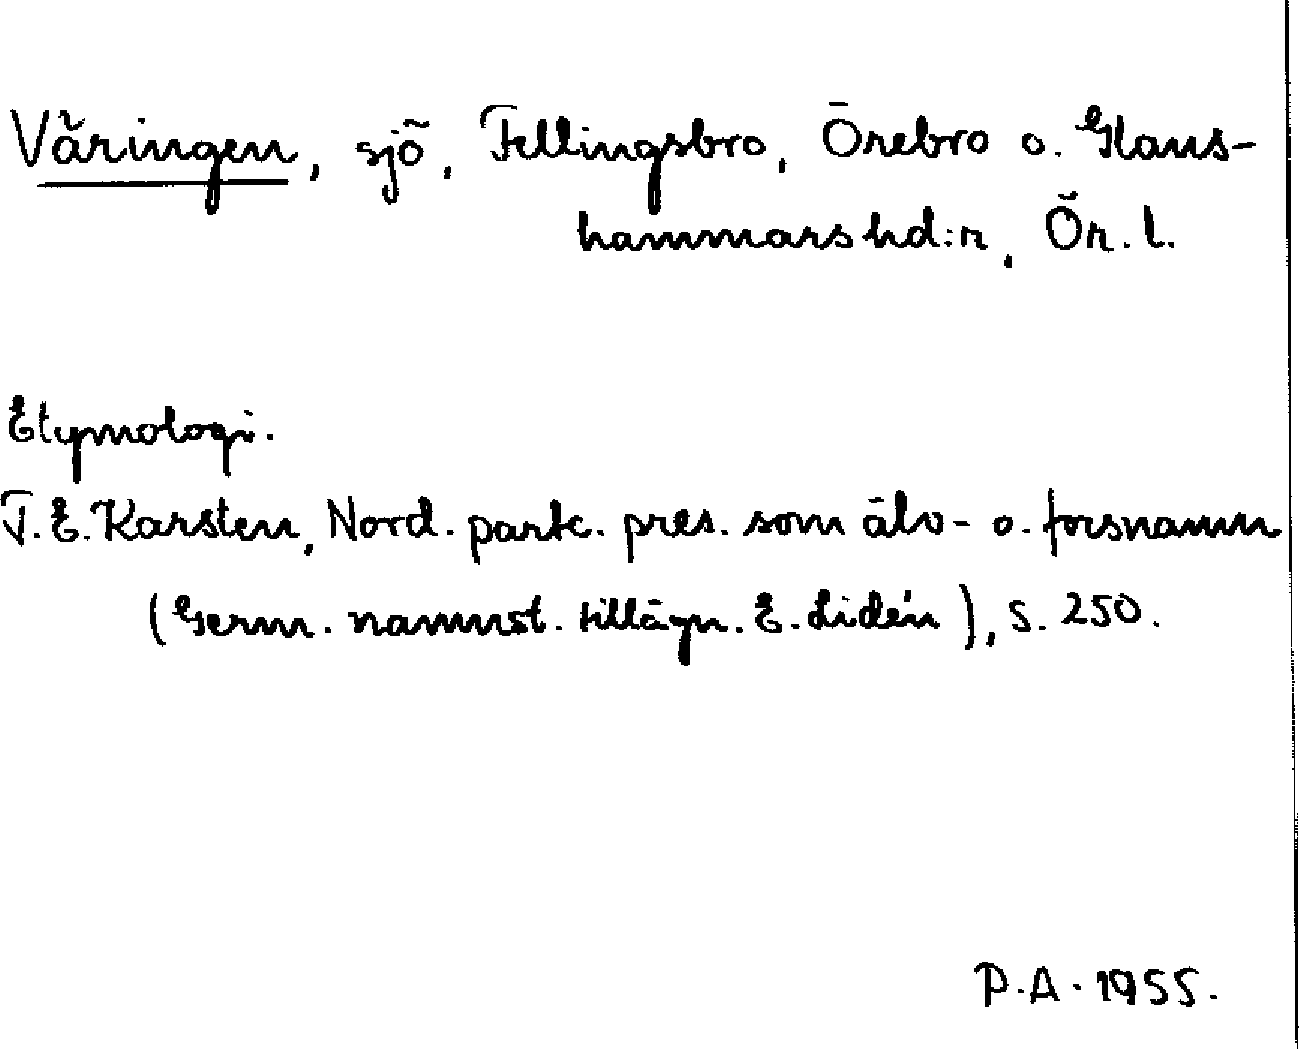 Väringen, sjö, Fellingsbro, Örebro o. Glans-
hammars hd:r, Ör. l.
Etymologi.
T. E. Karsten, Nord. partc. pres. som älv- o. forsnamn
(Germ. namnst. tillägn. E. Lidén), s. 250.
P.A. 1955.